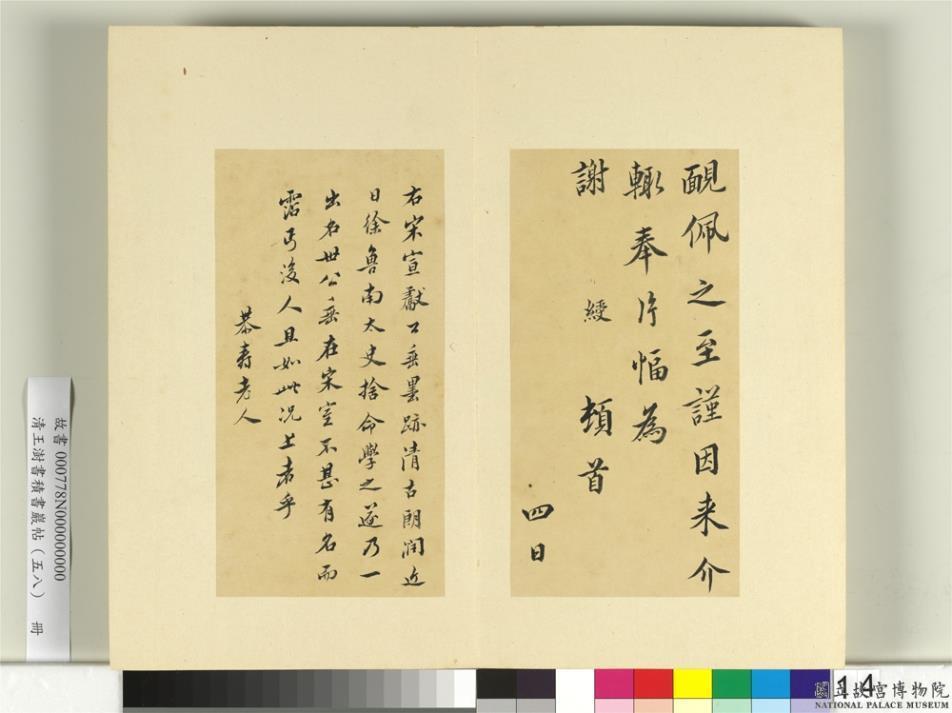 覼佩之至謹因来介
輙奉片幅為
謝
綬 頓首
四日
右宋宣獻公垂墨跡清古朗潤近
日徐魯南太史捨命學之遂乃一
出名世公垂在宋室不甚有名而
霑丐後人且如此况上者乎
恭壽老人
故書 000778N000000000
清王澍書積書巖帖（五八） 冊
14
國立故宮博物院
NATIONAL PALACE MUSEUM